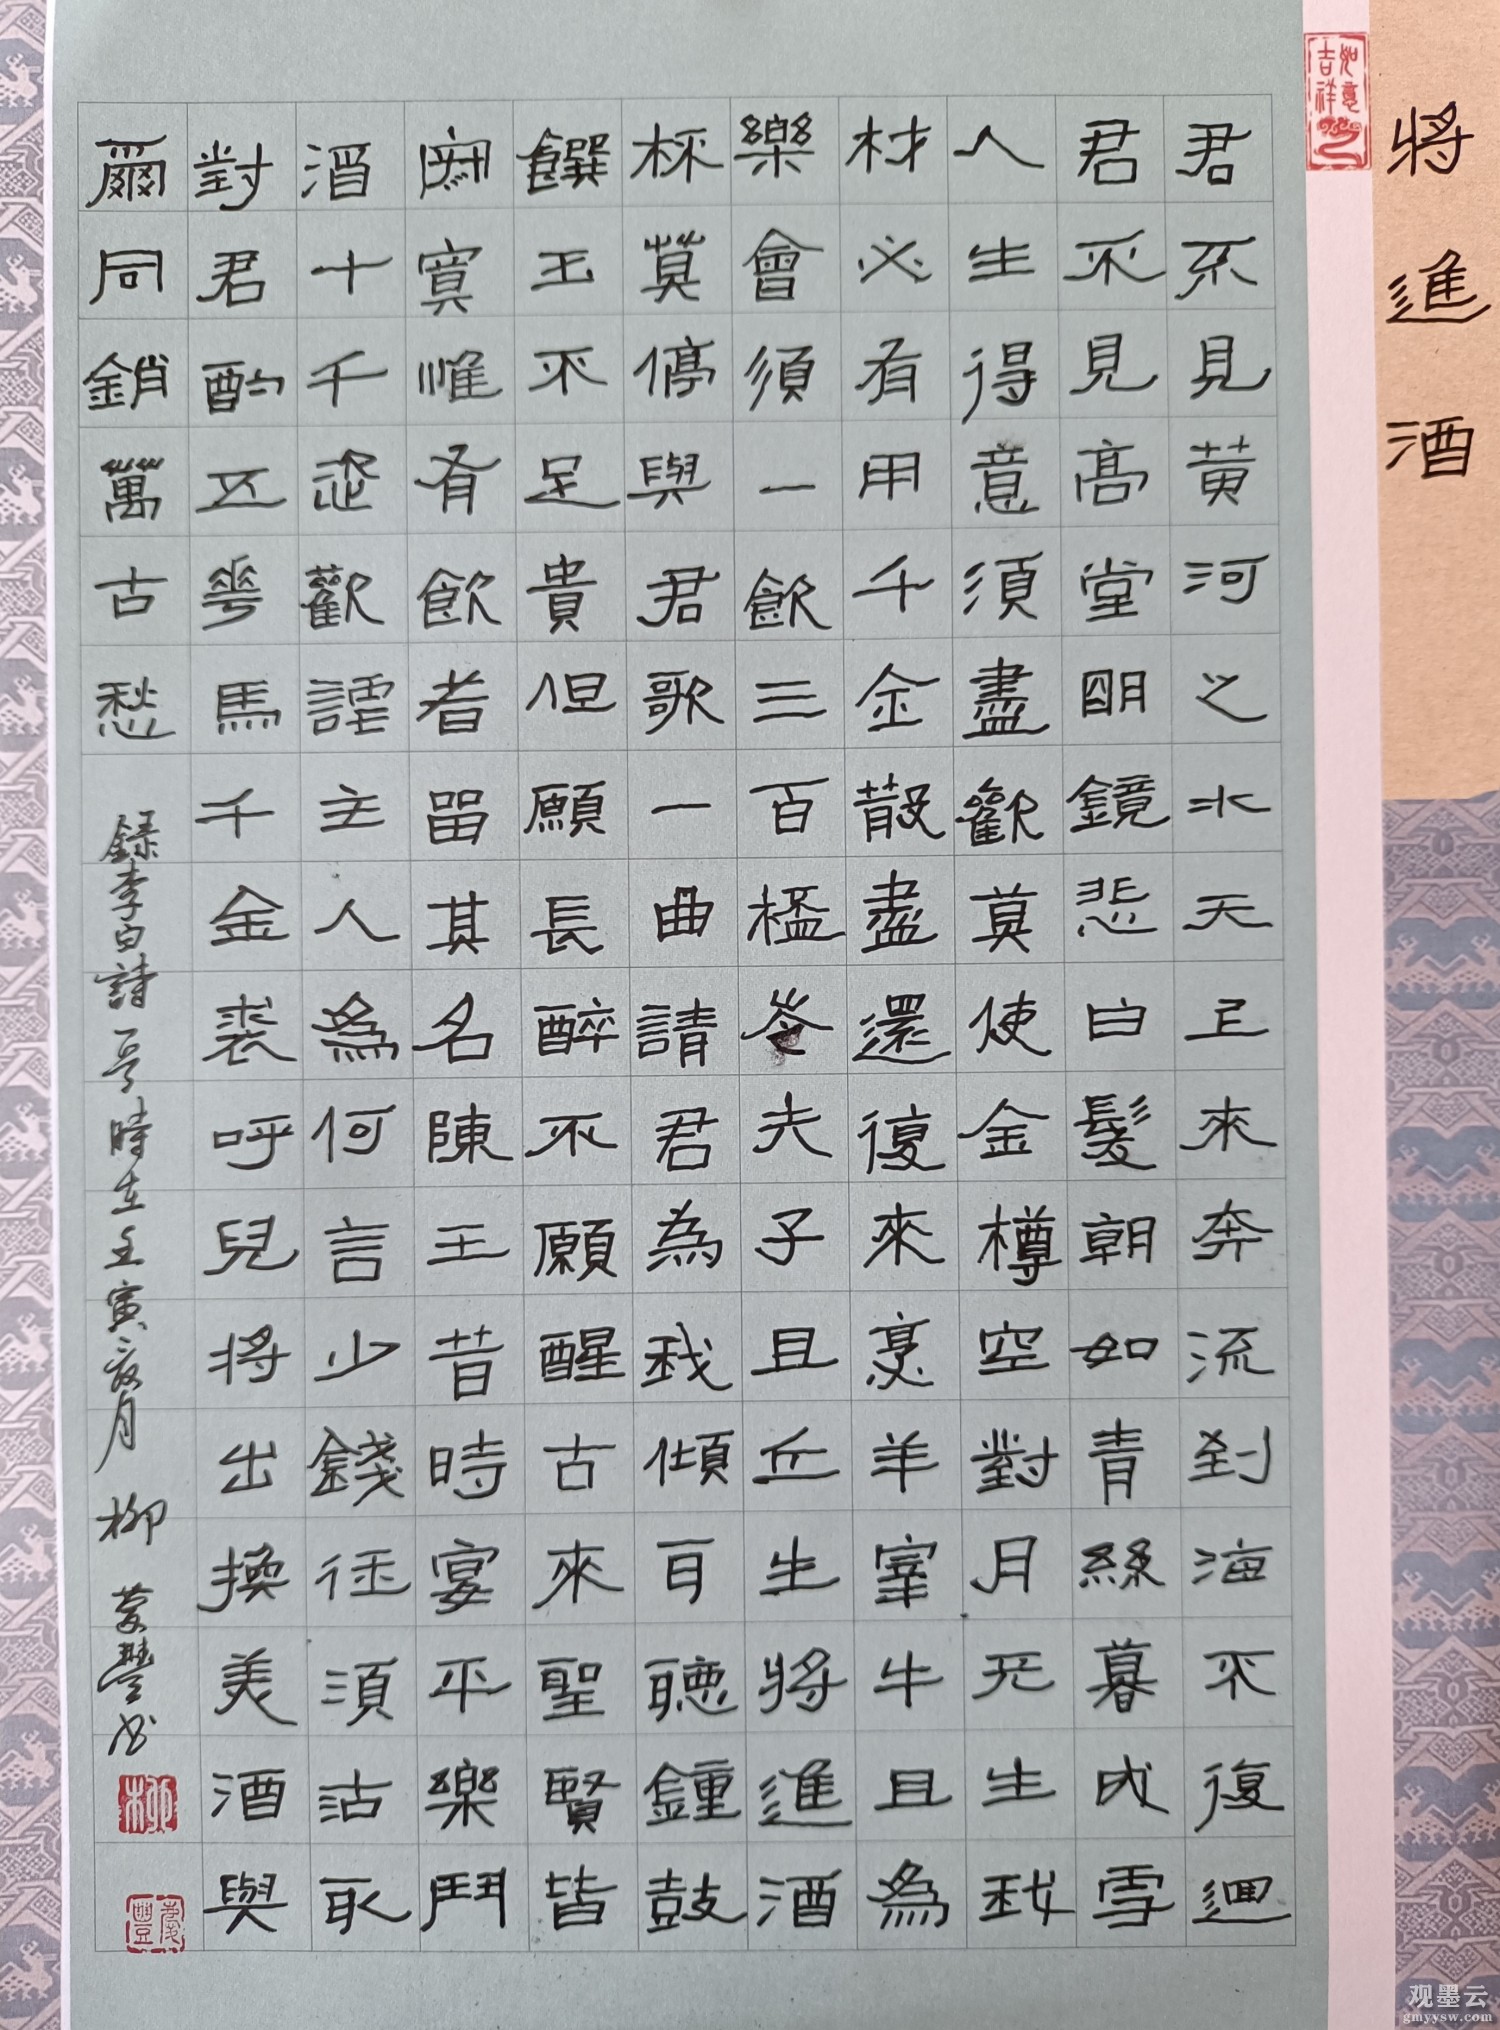 將進酒
如意吉祥
君不見黃河之水天上來奔流到海不復迴
君不見高堂明鏡悲白髮朝如青絲暮成雪
人生得意須盡歡莫使金樽空對月天生我
材必有用千金散盡還復來烹羊宰牛且為
樂會須一飲三百杯岑夫子丹丘生將進酒
杯莫停與君歌一曲請君為我傾耳聽鐘鼓
饌玉不足貴但願長醉不願醒古來聖賢皆
寂寞惟有飲者留其名陳王昔時宴平樂鬥
酒十千恣歡謔主人為何言少錢徑須沽取
對君酌五花馬千金裘呼兒將出換美酒與
爾同銷萬古愁
錄李白詩一首時在壬寅夜月柳慶豐書
柳
慶豐
观墨云
gmyysw.com